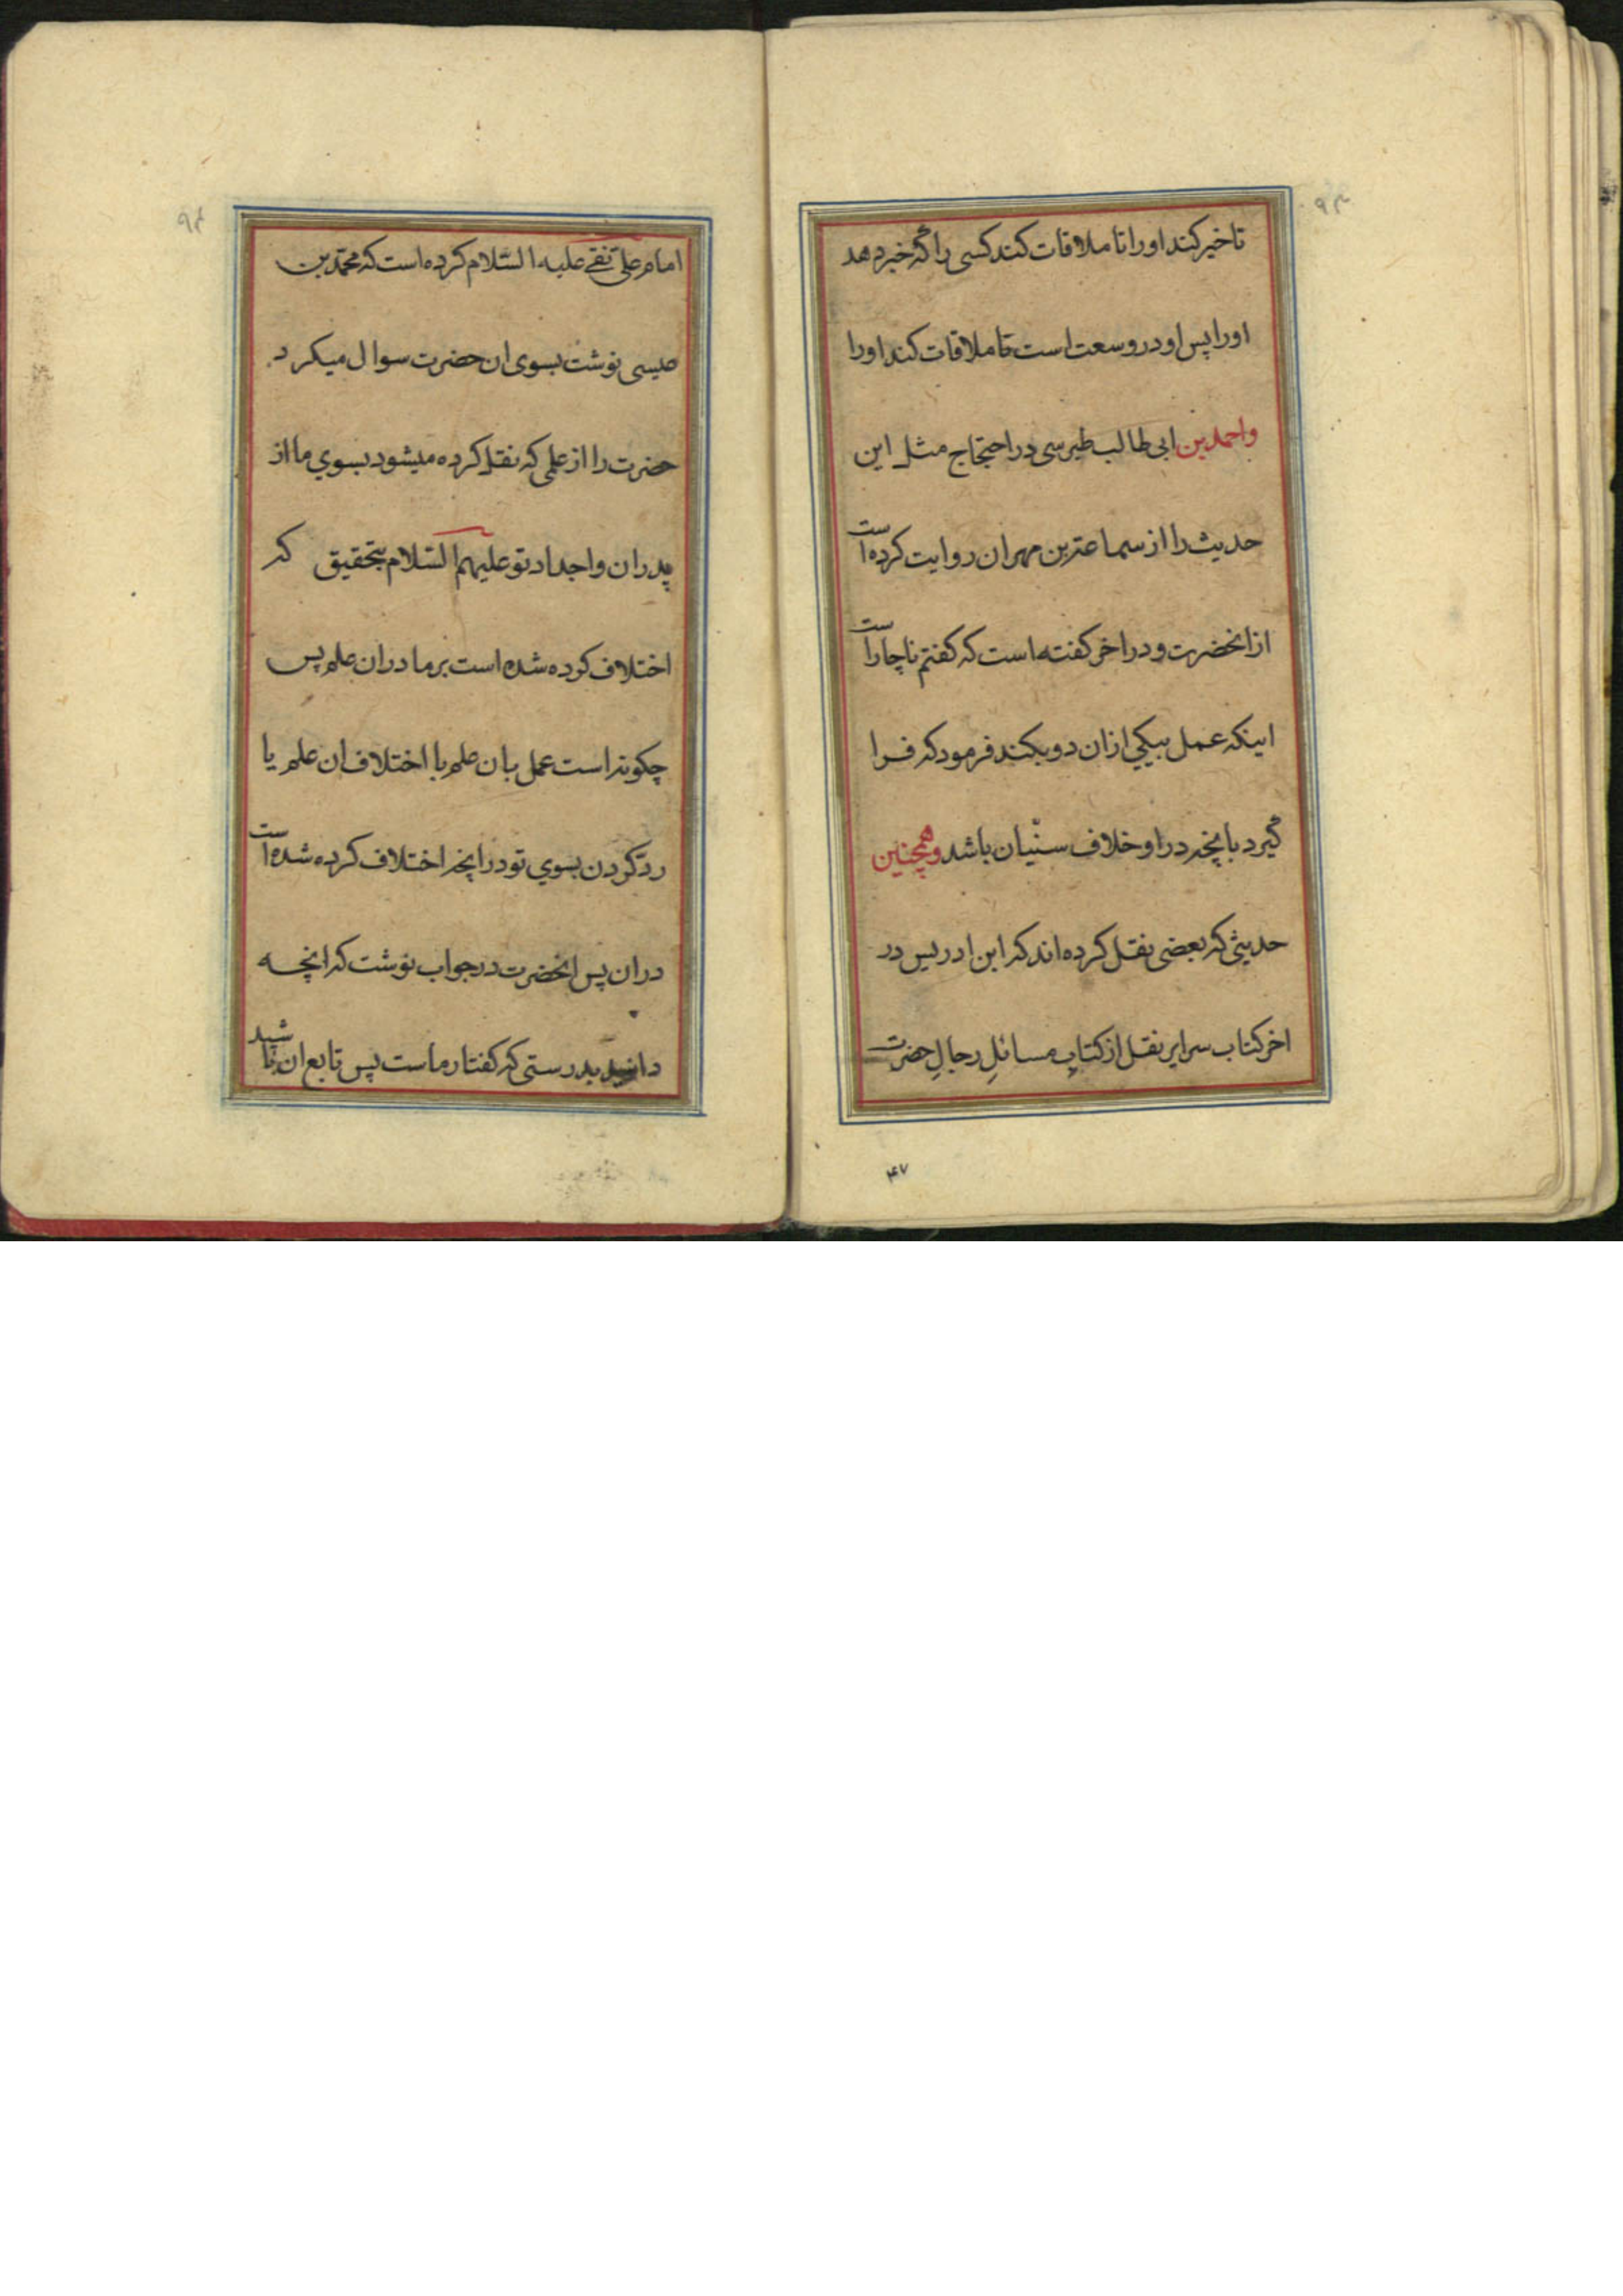 ۹۳
تاخیر کند او را تا ملاقات کند کسی را که خبر دهد
او را پس او در وسعت است تا ملاقات کند او را
واحمد بن ابی طالب طبرسی در احتجاج مثل این
حدیث را از سماعة بن مهران روایت کرده است
از انحضرت و در اخر کفته است که کفتم ناچار است
اینکه عمل بیکی از ان دو بکند فرمود که فرا
گیرد بانچه در او خلاف سنّیان باشد وهمچنین
حدیثی که بعضی نقل کرده اند که ابن ادریس در
اخر کتاب سرایر نقل از کتابِ مسائلِ رجالِ حضرت
۴۷
۹۴
امام علی نقی علیه السّلام کرده است که محمّد بن
عیسی نوشت بسوی ان حضرت سوال میکرد
حضرت را از علمی که نقل کرده میشود بسوي ما از
پدران واجداد تو علیهم السّلام بتحقیق که
اختلاف کرده شده است بر ما در ان علم پس
چکونه است عمل بان علم با اختلاف ان علم یا
ردّ کردن بسوي تو در انچه اختلاف کرده شده است
در ان پس انحضرت در جواب نوشت که انچه
دانید بدرستی که کفتار ماست پس تابع ان باشید